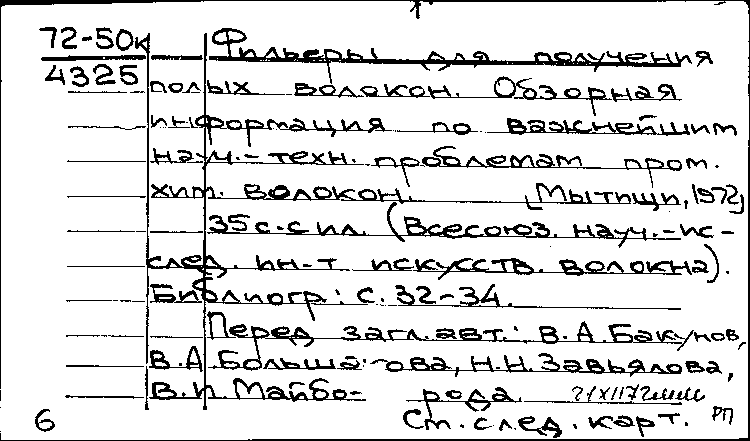 72-50к Фильеры для получения
4325 полых волокон. Обзорная
информация по важнейшим
науч.-техн. проблемам пром.
хим. волокон. [Мытищи, 1972]
35 с. с ил. (Всесоюз. науч.-ис-
след. ин-т искусств. волокна).
Библиогр.: с. 32-34.
Перед загл. авт.: В.А. Бакунов,
В.А. Большакова, Н.Н. Завьялова,
В.И. Майбо- рода.
6 См. след. карт. РП